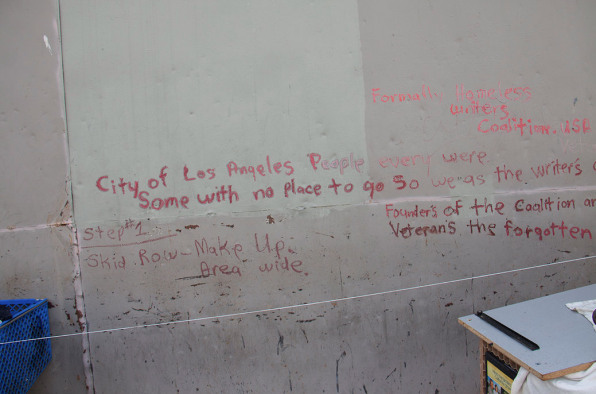 Formally Homeless
writers
Coalition. USA
City of Los Angeles People every were
Some with no Place to go So we as the writer's
Founders of the Coalition an
Veterans the forgotten
Step #1
Skid Row - Make Up.
Area wide.